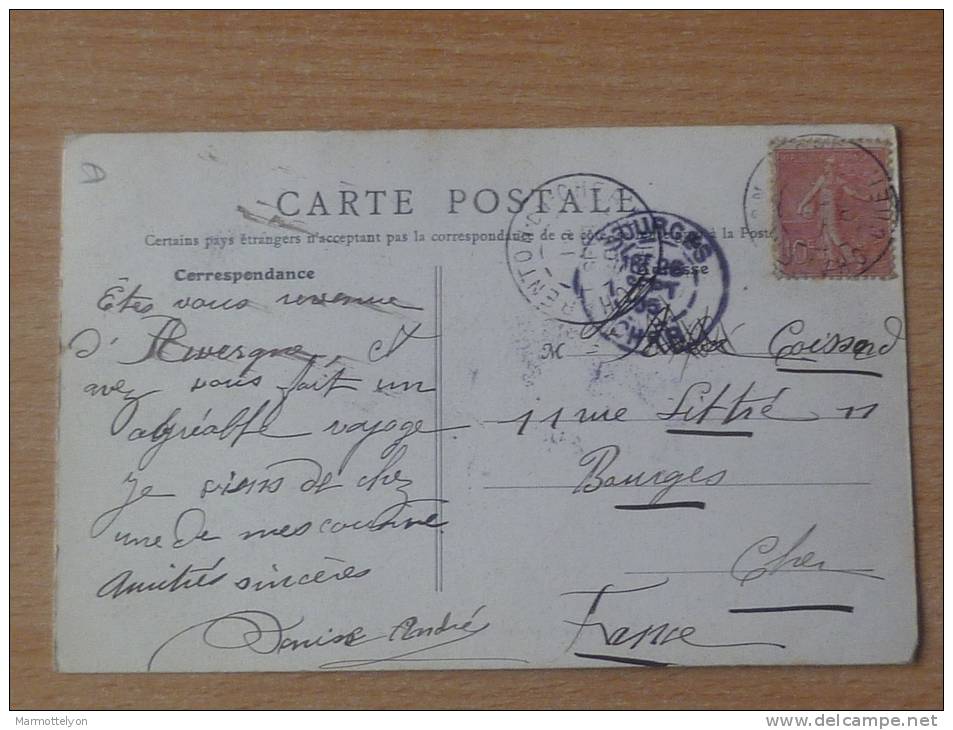 CARTE POSTALE
Certains pays étrangers n'acceptant pas la correspondance de ce côté à la Poste
Correspondance
Adresse
Etes vous revenue
d'Auvergne, et
avez vous fait un
agréable voyage
Je viens de chez
une de mes cousine
Amitiés sincères
Denise André
M Coissard
11 rue Littré 11
Bourges
Cher
France
BOURGES
CHER
10
Marmottelyon
www.delcampe.net